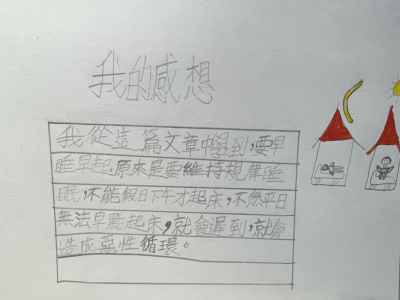 我的感想
我從這篇文章中學到，要早
睡早起，原來是要維持規律睡
眠，不能假日下午才起床，不然平日
無法早點起床，就會遲到，就會
造成惡性循環。